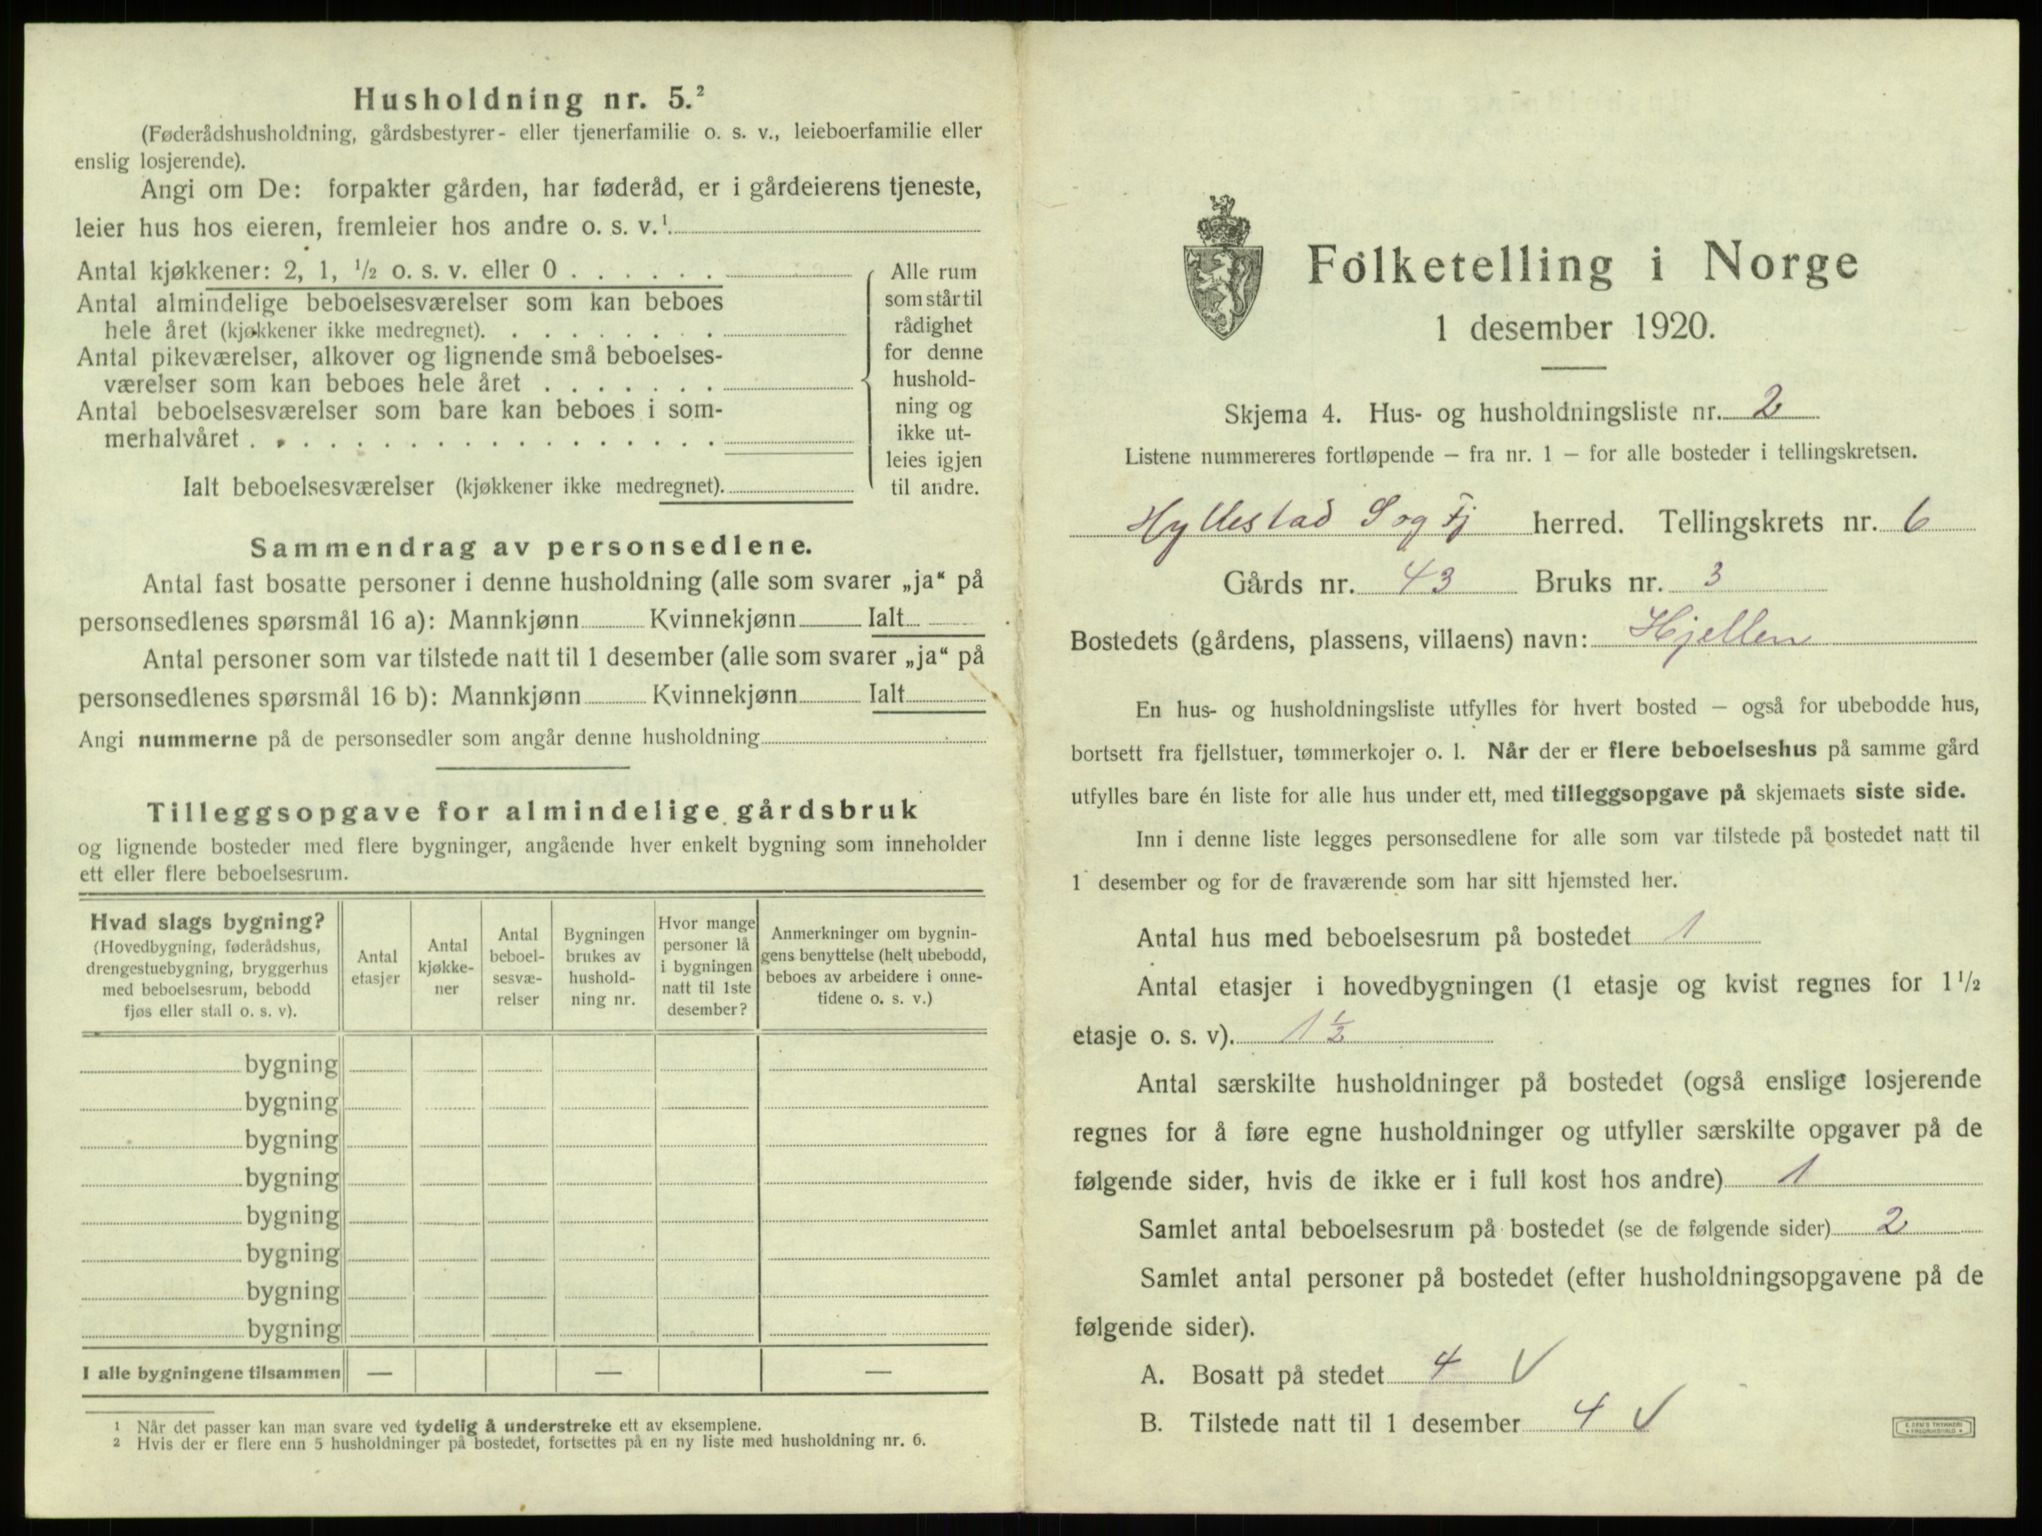 Husholdning nr. 5.²
(Føderådshusholdning, gårdsbestyrer- eller tjenerfamilie o. s. v., leieboerfamilie eller
enslig losjerende).
Angi om De: forpakter gården, har føderåd, er i gårdeierens tjeneste,
leier hus hos eieren, fremleier hos andre o. s. v.¹
Antal kjøkkener: 2, 1, ½ o. s. v. eller 0 . . . . . .
Antal almindelige beboelsesværelser som kan beboes
hele året (kjøkkener ikke medregnet). . . . . . . . .
Antal pikeværelser, alkover og lignende små beboelses-
værelser som kan beboes hele året . . . . . . .
Antal beboelsesværelser som bare kan beboes i som-
merhalvåret . . . . . . . . . . . . . . . . . .
Ialt beboelsesværelser (kjøkkener ikke medregnet).
Alle rum
som står til
rådighet
for denne
hushold-
ning og
ikke ut-
leies igjen
til andre.
Sammendrag av personsedlene.
Antal fast bosatte personer i denne husholdning (alle som svarer „ja“ på
personsedlenes spørsmål 16 a): Mannkjønn Kvinnekjønn Ialt
Antal personer som var tilstede natt til 1 desember (alle som svarer „ja“ på
personsedlenes spørsmål 16 b): Mannkjønn Kvinnekjønn Ialt
Angi nummerne på de personsedler som angår denne husholdning
Tilleggsopgave for almindelige gårdsbruk
og lignende bosteder med flere bygninger, angående hver enkelt bygning som inneholder
ett eller flere beboelsesrum.
Hvad slags bygning?
(Hovedbygning, føderådshus,
drengestuebygning, bryggerhus
med beboelsesrum, bebodd
fjøs eller stall o. s. v).
Antal
etasjer
Antal
kjøkke-
ner
Antal
beboel-
sesvæ-
relser
Bygningen
brukes av
hushold-
ning nr.
Hvor mange
personer lå
i bygningen
natt til 1ste
desember?
Anmerkninger om bygnin-
gens benyttelse (helt ubebodd,
beboes av arbeidere i onne-
tidene o. s. v.)
bygning
bygning
bygning
bygning
bygning
bygning
bygning
bygning
I alle bygningene tilsammen — — —
¹ Når det passer kan man svare ved tydelig å understreke ett av eksemplene.
² Hvis der er flere enn 5 husholdninger på bostedet, fortsettes på en ny liste med husholdning nr. 6.
Folketelling i Norge
1 desember 1920.
Skjema 4. Hus- og husholdningsliste nr. 2
Listene nummereres fortløpende – fra nr. 1 – for alle bosteder i tellingskretsen.
Hyllestad Sog Fj herred. Tellingskrets nr. 6
Gårds nr. 43 Bruks nr. 3
Bostedets (gårdens, plassens, villaens) navn: Hjellen
En hus- og husholdningsliste utfylles for hvert bosted – også for ubebodde hus,
bortsett fra fjellstuer, tømmerkojer o. l. Når der er flere beboelseshus på samme gård
utfylles bare én liste for alle hus under ett, med tilleggsopgave på skjemaets siste side.
Inn i denne liste legges personsedlene for alle som var tilstede på bostedet natt til
1 desember og for de fraværende som har sitt hjemsted her.
Antal hus med beboelsesrum på bostedet 1
Antal etasjer i hovedbygningen (1 etasje og kvist regnes for 1½
etasje o. s. v). 1½
Antal særskilte husholdninger på bostedet (også enslige losjerende
regnes for å føre egne husholdninger og utfyller særskilte opgaver på de
følgende sider, hvis de ikke er i full kost hos andre) 1
Samlet antal beboelsesrum på bostedet (se de følgende sider) 2
Samlet antal personer på bostedet (efter husholdningsopgavene på de
følgende sider).
A. Bosatt på stedet 4 V
B. Tilstede natt til 1 desember 4 V